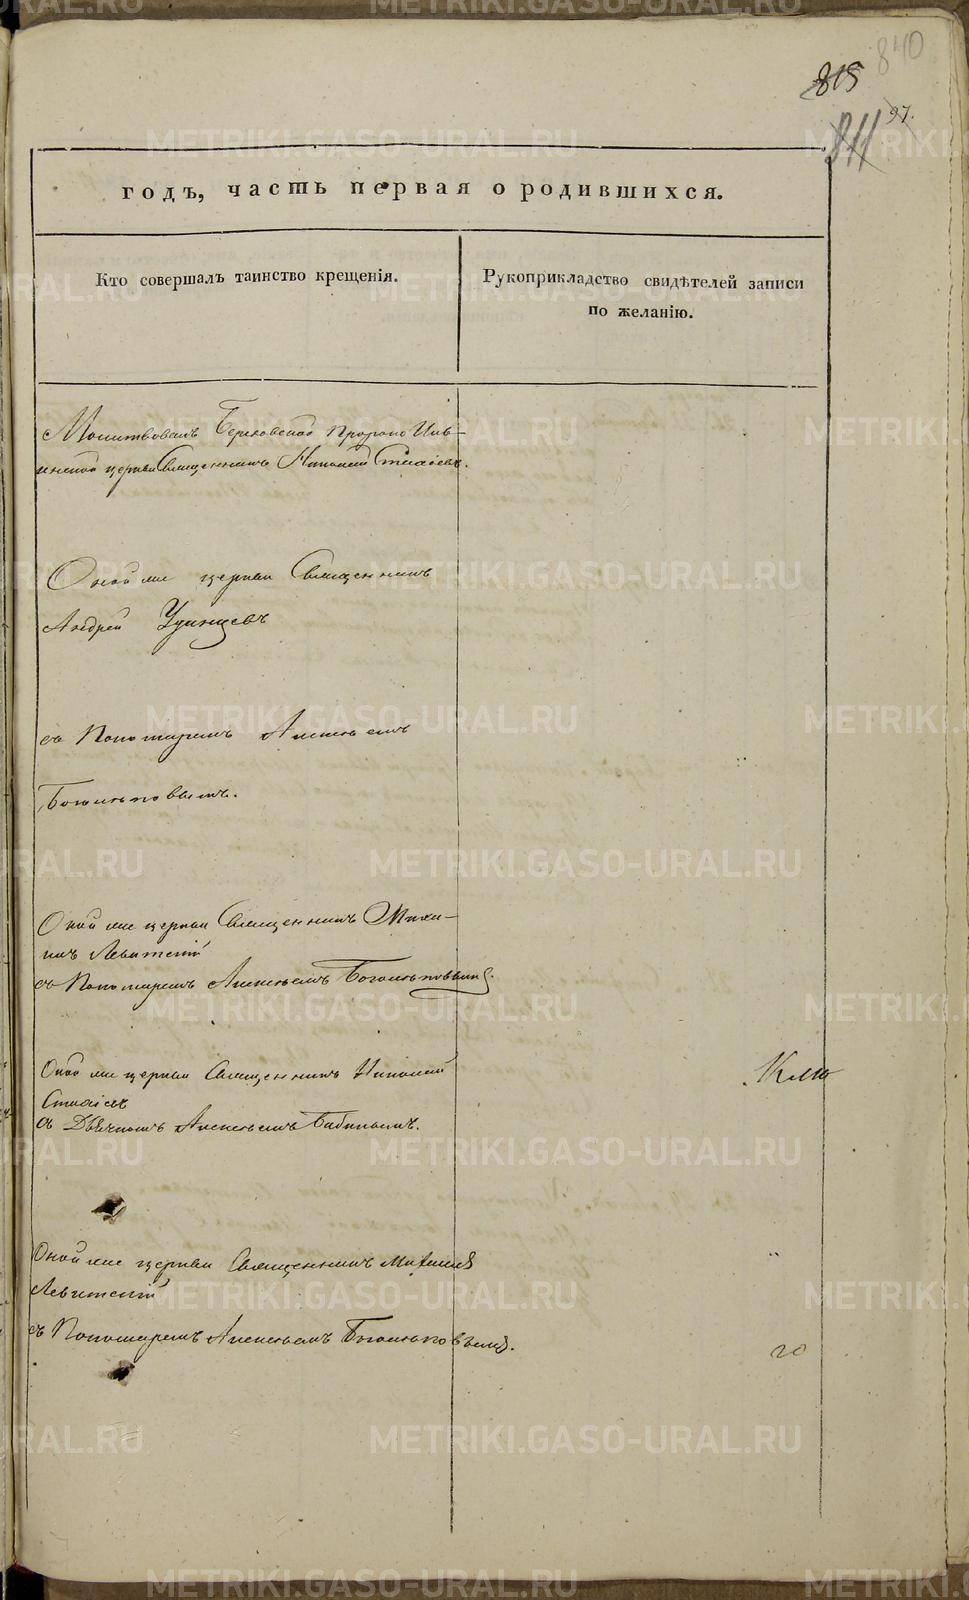 840
815
97.
811
годъ, часть первая о родившихся.
Кто совершалъ таинство крещенія.
Рукоприкладство свидѣтелей записи
по желанію.
Молитвовалъ Пророко Иль-
инской церкви Священникъ Николай
Оной же церкви Священникъ
Андрей Удинцевъ
съ Пономаремъ Алексѣемъ
Богомоловымъ.
Оной же церкви Священникъ Миха-
илъ Левитскій
съ Пономаремъ Алексѣемъ
Оной же церкви Священникъ Николай
съ Дьячкомъ Алексѣемъ Бабинымъ.
Оной же церкви Священникъ Михаилъ
Левитскій
съ Пономаремъ Алексѣемъ
20
METRIKI.GASO-URAL.RU